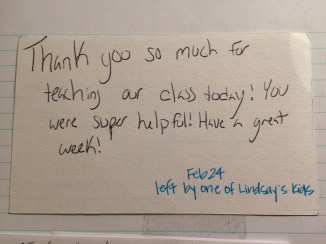 Thank you so much for
teaching our class today! You
were super helpful! Have a great
week!
Feb 24
left by one of Lindsay's kids